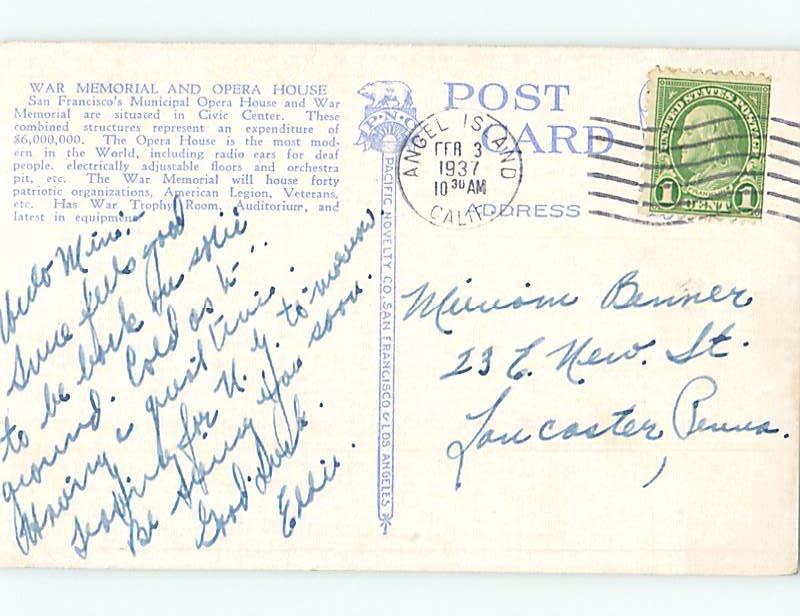 WAR MEMORIAL AND OPERA HOUSE
San Francisco's Municipal Opera House and War
Memorial are situated in Civic Center. These
combined structures represent an expenditure of
$6,000,000. The Opera House is the most mod-
ern in the World, including radio ears for deaf
people, electrically adjustable floors and orchestra
pit, etc. The War Memorial will house forty
patriotic organizations, American Legion, Veterans,
etc. Has War Trophy Room, Auditorium, and
latest in equipment.
Hello Mim:-
Sure feels good
to be back on soil
ground. Cold as h-..
Having a great time.
leaving for N.Y. to morrow
Be seeing you soon.
Good Luck.
Eddie.
P·N·C
PACIFIC NOVELTY CO. SAN FRANCISCO & LOS ANGELES
POST
CARD
ADDRESS
ANGEL ISLAND
FEB 3
1937
10 30 AM
CALIF.
UNITED STATES POSTAGE
FRANKLIN
1 CENT 1
Miriam Benner
23 E. New. St.
Lancaster Penna.